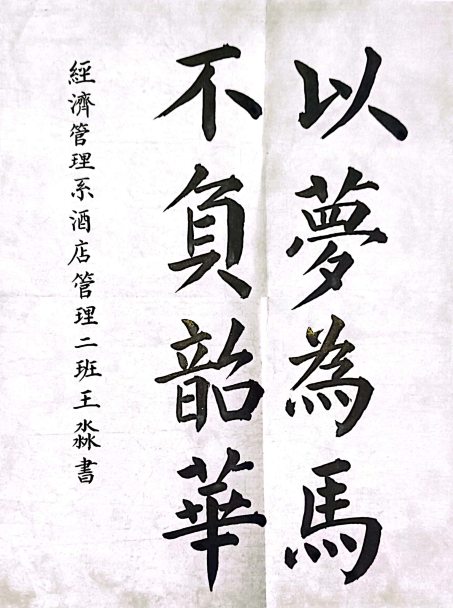 以夢為馬
不負韶華
經濟管理系酒店管理二班王淼書